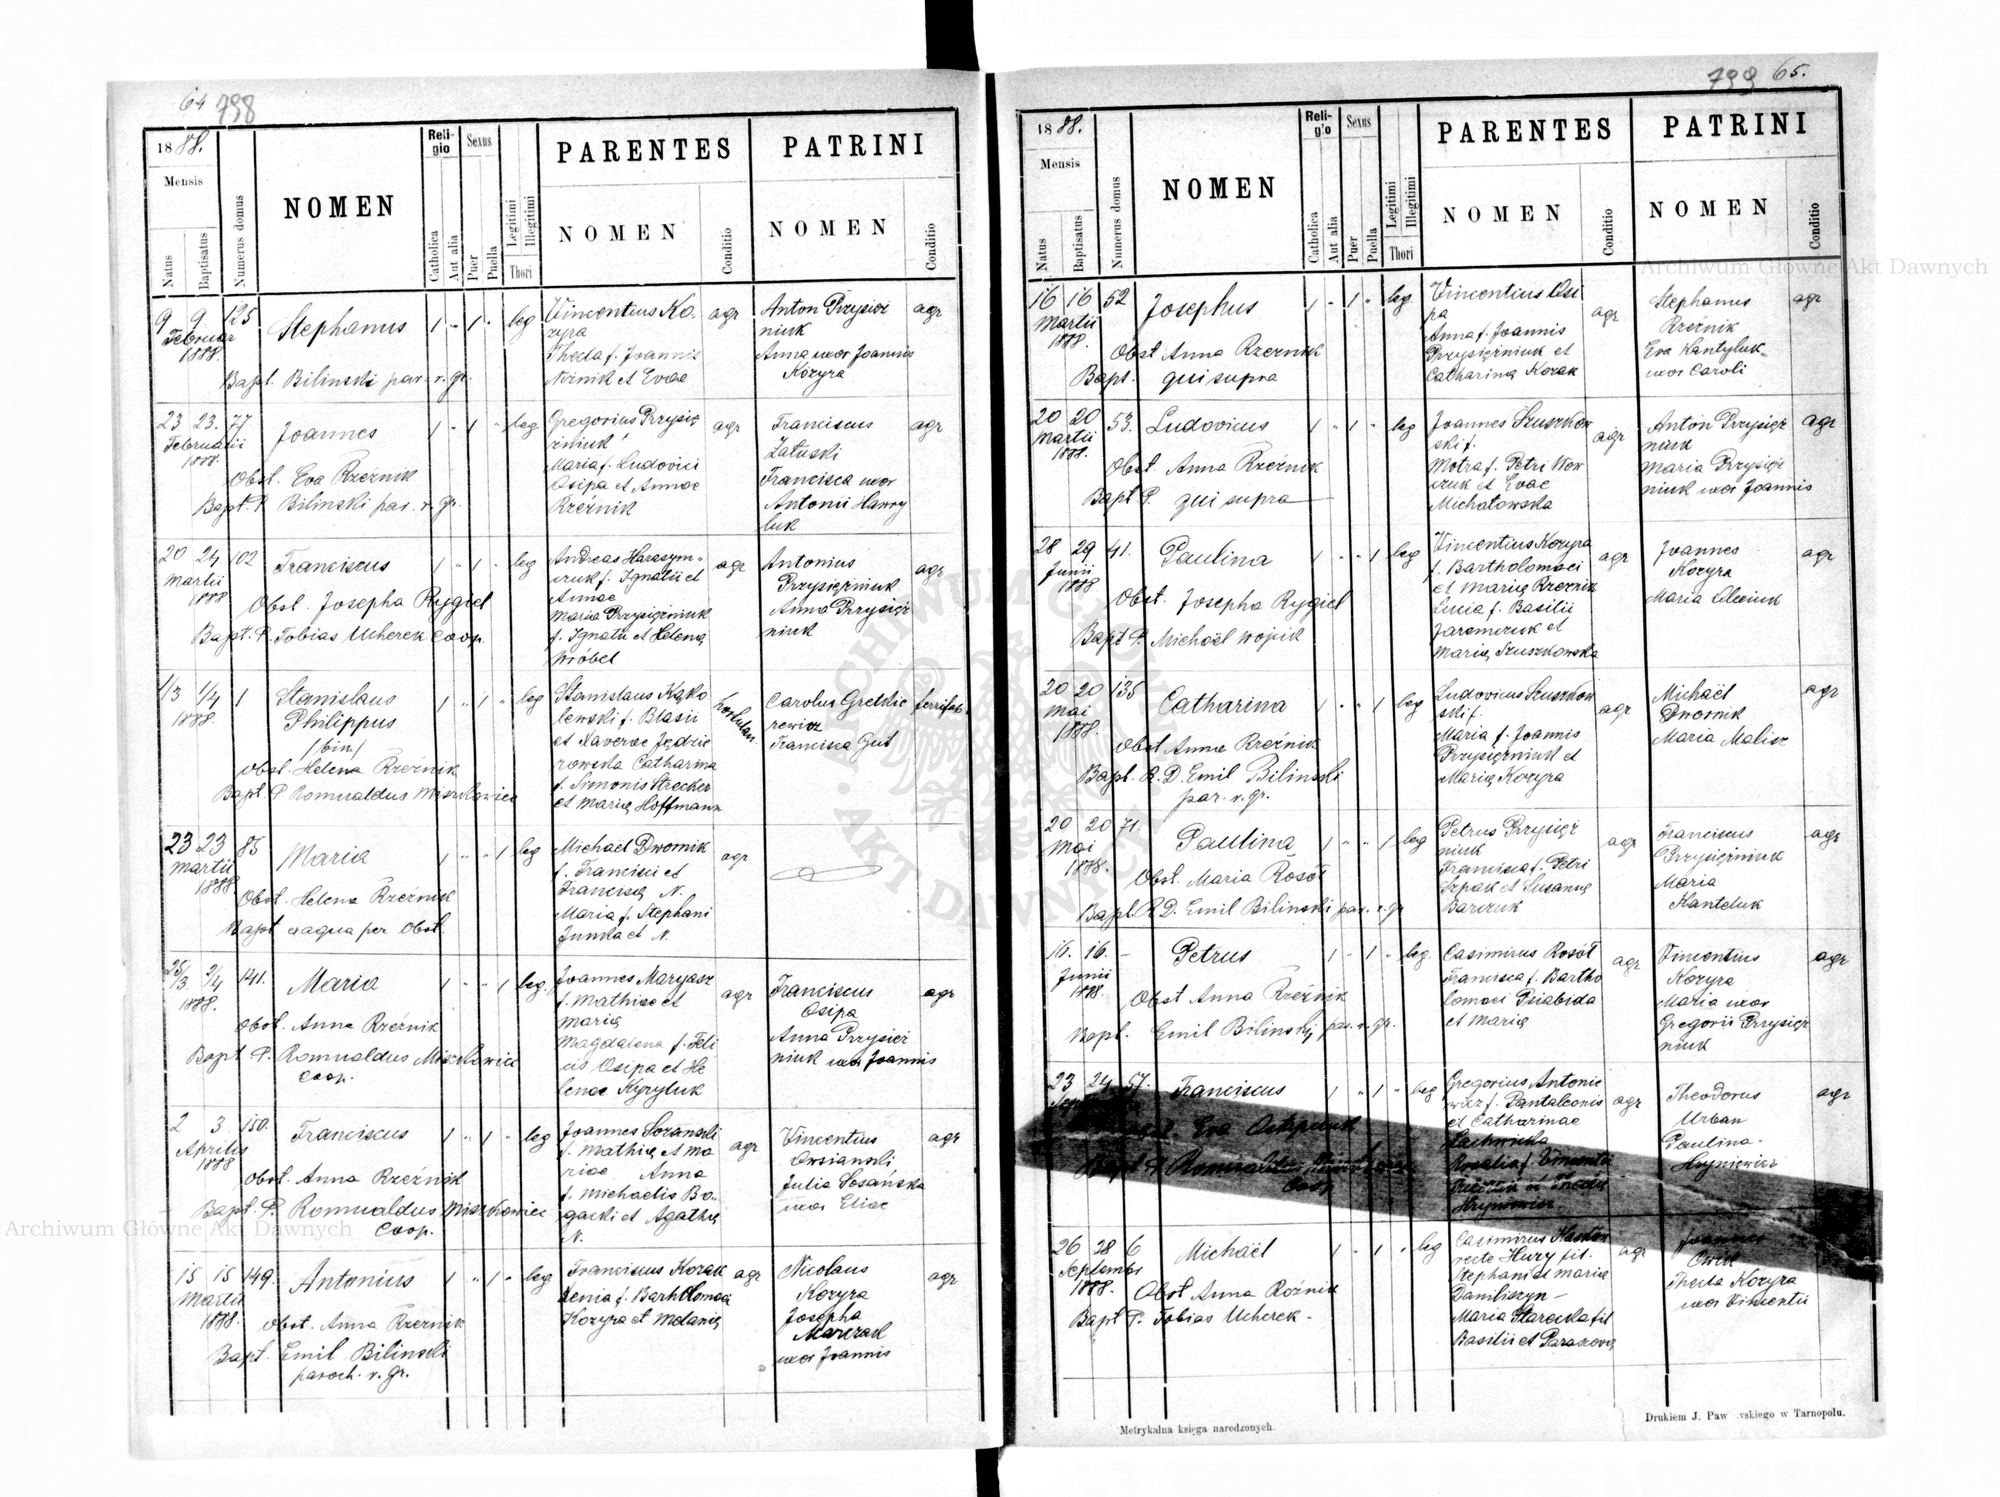 64 798
1888.
Mensis
Natus
Baptisatus
Numerus domus
NOMEN
Religio
Catholica
Aut alia
Sexus
Puer
Puella
Legitimi
Illegitimi
Thori
PARENTES
NOMEN
Conditio
PATRINI
NOMEN
Conditio
9 9 125 Stephanus 1 " 1 " leg
Februar
1888.
Bapt. Bilinski par. r. gr.
Vincentius Ko-
zyra
Thecla f. Joannis
et Evae
agr
Anton Przysięż
niuk
Anna uxor Joannis
Kozyra
agr
23 23. 77 Joannes 1 " 1 " leg
Februarii
1888.
Obst. Eva Rzeźnik
Bapt. P. Bilinski par. r. gr.
Gregorius Przysię
żniuk
Maria f. Ludovici
Osipa et Annae
Rzeźnik
agr
Franciscus
Załuski
Francisca uxor
Antonii Hawry
luk
agr
20 24 102 Franciscus 1 " 1 " leg
Martii
1888
Obst. Josepha Rygiel
Bapt. P. Tobias Ucherek Coop.
Andreas Harasym-
czuk f. Ignatii et
Annae
Maria Przysiężniuk
f. Ignatii et Helenę
Wróbel
agr
Antonius
Przysiężniuk
Anna Przysięż
niuk
agr
1/3 1/4 1 Stanislaus 1 " 1 " leg
1888.
Philippus
/bin/
Obst. Helena Rzeźnik
Bapt. P. Romualdus Miszkowicz
Stanislaus Kąko
lewski f. Blasii
et Xaverae Jędrze
rowska Catharina
f. Simonis Strecker
et Marię Hoffmann
hortulan.
Carolus Gretkie
rewicz
Francisca Gut
23 23 85 Maria 1 " " 1 leg
Martii
1888
Obst. Helena Rzeźnik
Bapt ex aqua per Obst.
Michael Dwornik
f. Francisci et
Franciscę N.
Maria f. Stephani
Junka et N.
agr
25/3 2/4 141. Maria 1 " " 1 leg.
1888.
Obst. Anna Rzeźnik
Bapt. P. Romualdus Miszkowicz
Coop.
Joannes Maryasz
f. Mathiae et
Marię
Magdalena f. Feli
cis Osipa et He
lenae Kyryluk
agr
Franciscus
Osipa
Anna Przysięż
niuk uxor Joannis
agr
2 3 150. Franciscus 1 " 1 " leg
Aprilis
1888
Obst. Anna Rzeźnik
Bapt. P. Romualdus Miszkowicz
Coop.
Joannes Soranski
f. Mathię et Ma
riae Anna
f. Michaelis Bo-
gacki et Agathę
N.
agr
Vincentius
Owsianski
Julia Sosańska
uxor Eliae
agr
15 15 149. Antonius 1 " 1 " leg
Martii
1888.
Obst. Anna Rzeźnik
Bapt. Emil Bilinski
paroch. r. gr.
Franciscus Kozak
Xenia f. Bartholomaei
Kozyra et Melanię
agr
Nicolaus
Kozyra
Josepha
Marczak
uxor Joannis
agr
799 65.
1888.
Mensis
Natus
Baptisatus
Numerus domus
NOMEN
Religio
Catholica
Aut alia
Sexus
Puer
Puella
Legitimi
Illegitimi
Thori
PARENTES
NOMEN
Conditio
PATRINI
NOMEN
Conditio
16 16 52 Josephus 1 " 1 " leg.
Martii
1888.
Obst Anna Rzeznik
Bapt. qui supra
Vincentius Osi
pa
Anna f. Joannis
Przysiężniuk et
Catharinę Kozak
agr
Stephanus
Rzeźnik
Eva Kantyluk
uxor Caroli
agr
20 20 53. Ludovicus 1 " 1 " leg
Martii
1888.
Obst. Anna Rzeźnik
Bapt. P. qui supra
Joannes Szuszkow
ski f.
Motra f. Petri Wow
czuk et Evae
Michałowska
agr
Anton Przysięż
niuk
Maria Przysięż
niuk uxor Joannis
agr
28 29 41. Paulina 1 " " 1 leg
Junii
1888
Obst. Josepha Rygiel
Bapt P. Michaël Wojcik
Vincentius Kozyra
f. Bartholomaei
et Marię Rzeźnik
Lucia f. Basilii
Jaremczuk et
Marię Szuszkowska
agr
Joannes
Kozyra
Maria Olexiuk
agr
20 20 135 Catharina 1 " " 1 leg
Mai
1888.
Obst Anna Rzeźnik
Bapt. R. D. Emil Bilinski
par. r. gr.
Ludovicus Szuszkow
ski f.
Maria f. Joannis
Przysiężniuk et
Marię Kozyra
agr
Michaël
Dwornik
Maria Malisz
agr
20 20 71. Paulina 1 " " 1 leg
Mai
1888.
Obst. Maria Rosół
Bapt. R. D. Emil Bilinski par. r. gr
Petrus Przysięż
niuk
Francisca f. Petri
Szpak et Susannę
Barczuk
agr
Franciscus
Przysiężniuk
Maria
Kanteluk
agr
16. 16. - Petrus 1 - 1 " leg.
Junii
1888.
Obst Anna Rzeźnik
Bapt. Emil Bilinski par. r. gr.
Casimirus Rosół
Francisca f. Bartho
lomaei Psiabida
et Marię
agr
Vincentius
Kozyra
Maria uxor
Gregorii Przysięż
niuk
agr
23 24 57. Franciscus 1 " 1 " leg
Eva Ostapczuk
Bapt P. Romualdus
Coop
Gregorius Antonie
wicz f. Pantaleonis
et Catharinae
Lachwicka
Rosalia f. Vincentii
Hryniewicz
agr
Theodorus
Urban
Paulina
Hryniewicz
agr
26 28 6 Michaël 1 " 1 " leg
Septembr
1888.
Obst Anna Rożnik
Bapt P. Tobias Ucherek -
Casimirus
recte Hury fil.
Stephani et Marię
Daniliszyn -
Maria Starecka fil
Basilii et Paraxevę
agr
Joannes
Thecla Kozyra
uxor Vincentii
Metrykalna księga narodzonych.
Drukiem J. Paw vskiego w Tarnopolu.
Archiwum Główne Akt Dawnych
Archiwum Główne Akt Dawnych
ARCHIWUM GŁÓWNE AKT DAWNYCH